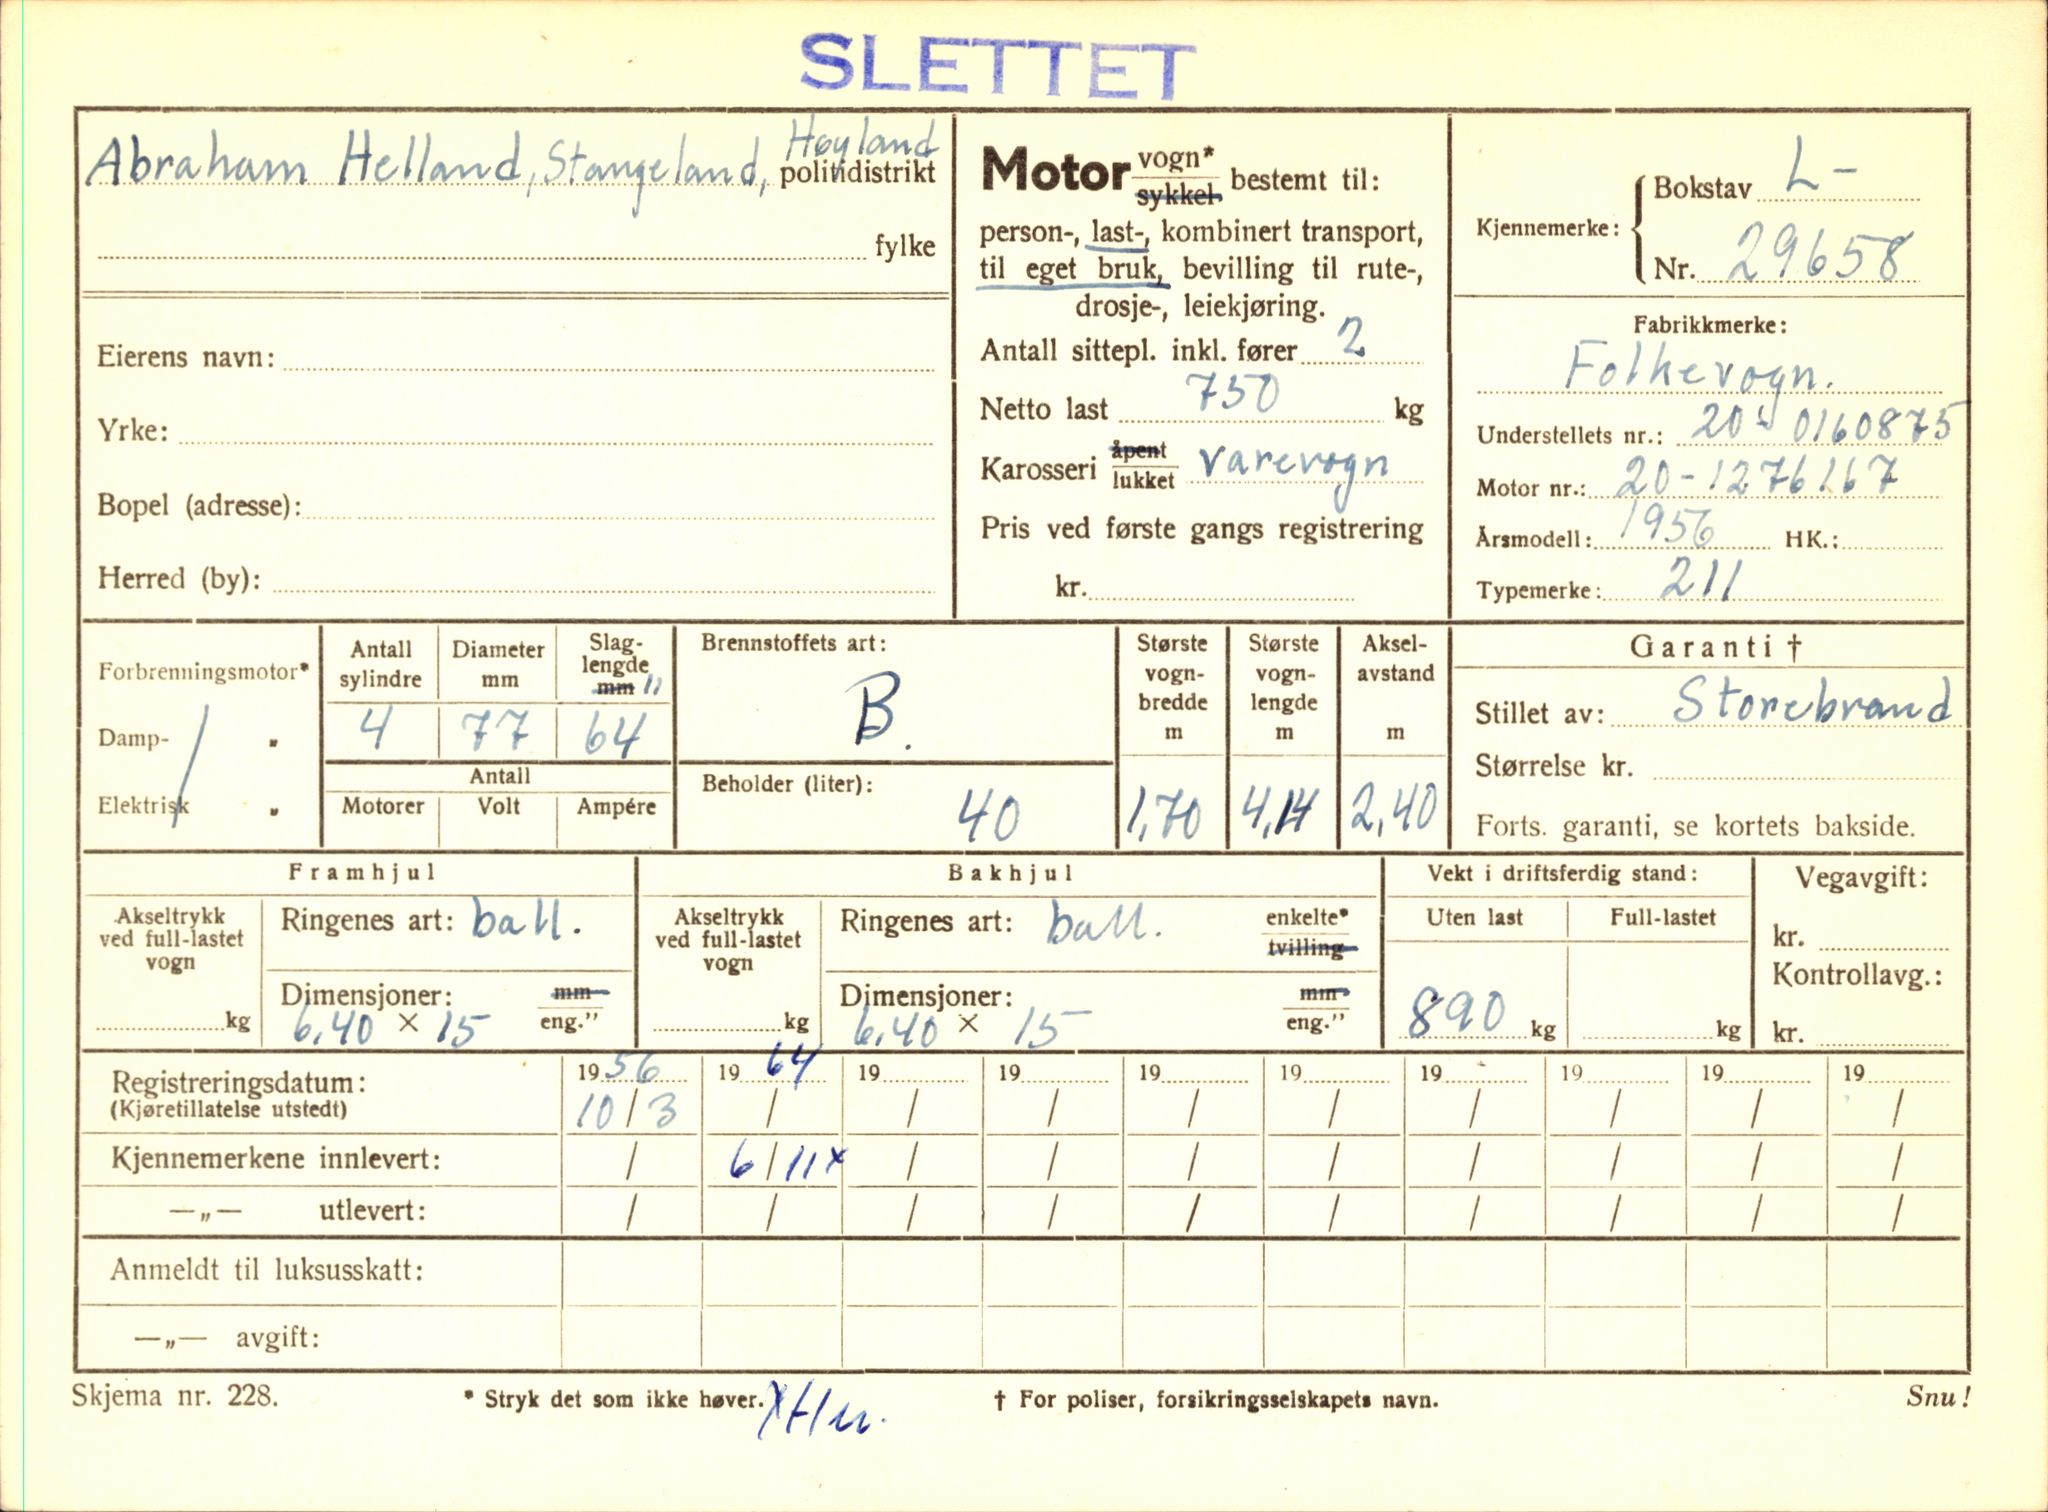 SLETTET
Abraham Helland, Stangeland, Høyland politidistrikt
fylke
Eierens navn:
Yrke:
Bopel (adresse):
Herred (by):
Motor vogn* sykkel bestemt til:
person-, last-, kombinert transport,
til eget bruk, bevilling til rute-,
drosje-, leiekjøring.
Antall sittepl. inkl. fører 2
Netto last 750 kg
Karosseri åpent lukket varevogn
Pris ved første gangs registrering
kr.
Kjennemerke: Bokstav L-
Nr. 29658
Fabrikkmerke:
Folkevogn.
Understellets nr.: 20-0160875
Motor nr.: 20-1276167
Årsmodell: 1956 HK.:
Typemerke: 211
Forbrenningsmotor*
Damp- / „
Elektrisk „
Antall sylindre 4
Diameter mm 77
Slag-lengde mm " 64
Antall
Motorer Volt Ampére
Brennstoffets art:
B.
Beholder (liter):
40
Største vogn-bredde m 1,70
Største vogn-lengde m 4,14
Aksel-avstand m 2,40
Garanti †
Stillet av: Storebrand
Størrelse kr.
Forts. garanti, se kortets bakside.
Framhjul
Akseltrykk ved full-lastet vogn kg
Ringenes art: ball.
Dimensjoner: mm eng.”
6,40 × 15
Bakhjul
Akseltrykk ved full-lastet vogn kg
Ringenes art: ball. enkelte* tvilling
Dimensjoner: mm eng.”
6,40 × 15
Vekt i driftsferdig stand:
Uten last Full-lastet
890 kg kg
Vegavgift:
kr.
Kontrollavg.:
kr.
Registreringsdatum: 1956 1964 19 19 19 19 19 19 19 19
(Kjøretillatelse utstedt) 10/3 / / / / / / / / /
Kjennemerkene innlevert: / 6/11x / / / / / / / /
—„— utlevert: / / / / / / / / / /
Anmeldt til luksusskatt:
—„— avgift:
Skjema nr. 228. * Stryk det som ikke høver. † For poliser, forsikringsselskapets navn. Snu!